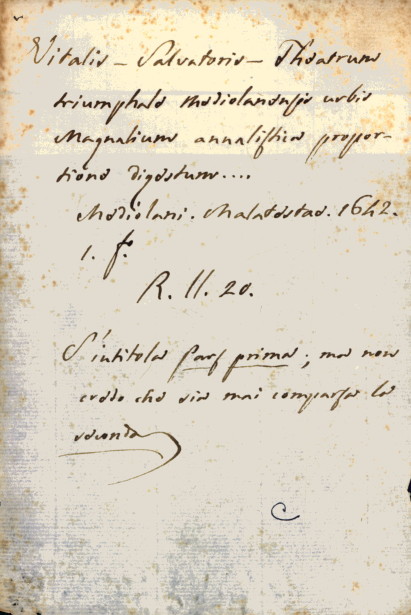 Vitalis – Salvatoris – Theatrum
triumphale Mediolanensis urbis
Magnalium annalistica propor-
tione digestum....
Mediolani. Malatestae. 1642.
1. fo.
R. II. 20.
S'intitola Pars prima; ma non
credo che sia mai comparsa la
seconda